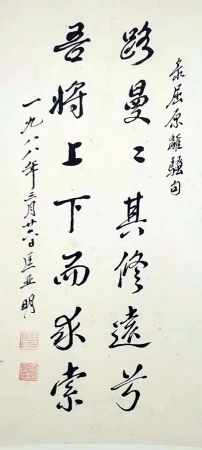 录屈原离骚句
路曼〻其修远兮
吾将上下而求索
一九八八年三月廿六日匡亚明